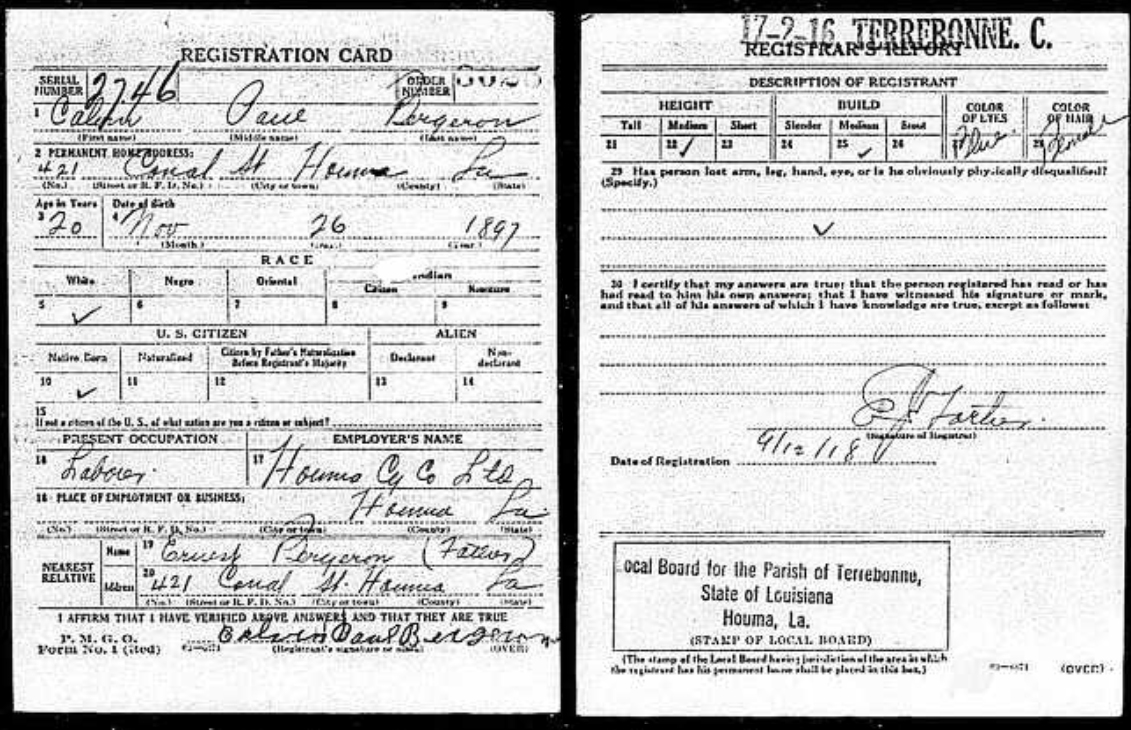 REGISTRATION CARD
SERIAL NUMBER 2746 ORDER NUMBER
1 Calvin Paul Bergeron
(First name) (Middle name) (Last name)
2 PERMANENT HOME ADDRESS:
421 Canal St Houma La
(No.) (Street or R. F. D. No.) (City or town) (County) (State)
Age in Years Date of Birth
3 20 4 Nov 26 1897
(Month.) (Day.) (Year.)
RACE
White Negro Oriental Indian
Citizen Noncitizen
5 ✓ 6 7 8 9
U. S. CITIZEN ALIEN
Native Born Naturalized Citizen by Father's Naturalization Before Registrant's Majority Declarant Non-declarant
10 ✓ 11 12 13 14
15
If not a citizen of the U. S., of what nation are you a citizen or subject?
PRESENT OCCUPATION EMPLOYER'S NAME
16 Laborer. 17 Houma Cy Co Ltd
18 PLACE OF EMPLOYMENT OR BUSINESS:
Houma La
(No.) (Street or R. F. D. No.) (City or town) (County) (State)
NEAREST RELATIVE
Name 19 Ernest Bergeron (Father)
Address 20 421 Canal St. Houma La
(No.) (Street or R. F. D. No.) (City or town) (County) (State)
I AFFIRM THAT I HAVE VERIFIED ABOVE ANSWERS AND THAT THEY ARE TRUE
P. M. G. O.
Form No. 1 (Red) Calvin Paul Bergeron
(Registrant's signature or mark) (OVER)
17-2-16 TERREBONNE. C.
REGISTRAR'S REPORT
DESCRIPTION OF REGISTRANT
HEIGHT BUILD COLOR OF EYES COLOR OF HAIR
Tall Medium Short Slender Medium Stout
21 22 ✓ 23 24 25 ✓ 26 27 Blue 28 Blonde
29 Has person lost arm, leg, hand, eye, or is he obviously physically disqualified?
(Specify.)
✓
30 I certify that my answers are true; that the person registered has read or has
had read to him his own answers; that I have witnessed his signature or mark,
and that all of his answers of which I have knowledge are true, except as follows:
(Signature of Registrar)
Date of Registration 9/12/18
Local Board for the Parish of Terrebonne,
State of Louisiana
Houma, La.
(STAMP OF LOCAL BOARD)
(The stamp of the Local Board having jurisdiction of the area in which
the registrant has his permanent home shall be placed in this box.)
(OVER)